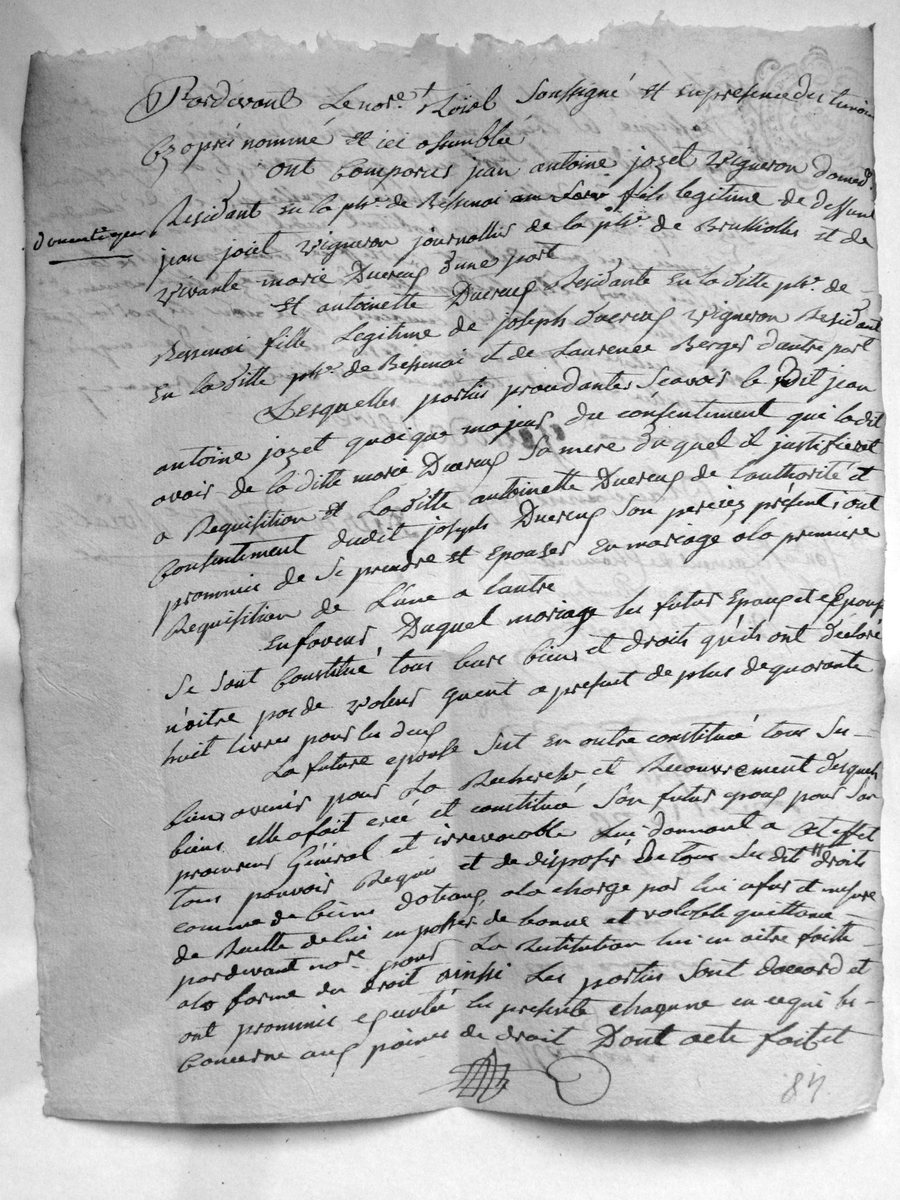 Pardevant Le nore. Royal Soussigné et en presence des temoins
Cy aprés nommé et ici assemblée
ont Comparus jean antoine jozet Vigneron
Residant en la phe. de Bessenai fils legitime de deffunt
jean jozet Vigneron journallier de la phe. de Brussiolle et de
vivante marie Ducreux d'une part
Et antoinette Ducreux Residante en la ditte phe. de
Bessenai fille Legitime de joseph Ducreux Vigneron Residant
En la ditte phe. de Bessenai et de Laurence Berger d'autre part
Lesquelles partis procedantes scavoir le dit jean
antoine jozet quoique majeur du consentement qu'il a dit
avoir de la ditte marie Ducreux sa mere duquel il justifierat
a Requisition et La ditte antoinette Ducreux de l'authorité et
Consentement dudit joseph Ducreux son pere icy présent ont
prommis de se prendre et Epouser En mariage a la premiere
Requisition de L'une a l'autre
En faveur Duquel mariage les futur Epoux et Epouse
se sont Constitué tous leurs biens et droits qu'ils ont declaré
n'aitre pas de valeur quent a present de plus de quarante
huit livres pour les deux
La future epouse s'est en outre constitué tous ses
biens avenir pour La Recherche et Recouvrement desquels
biens elle a fait créé et constitué son futur epoux pour son
procureur Général et irrevocable Lui donnant a cet effet
tous pouvoir Requis et de disposer de tous ses dit droits
comme de biens dotaux a la charge par lui a fur et mesure
de Recette de lui en passer de bonne et valable quittance
pardevant nore. pour La Restitution lui en aitre faitte
a la forme du droit ainsi Les partis sont d'accord et
ont prommis executé les presente chacune en ce qui les
Concerne aux peines de droit Dont acte fait et